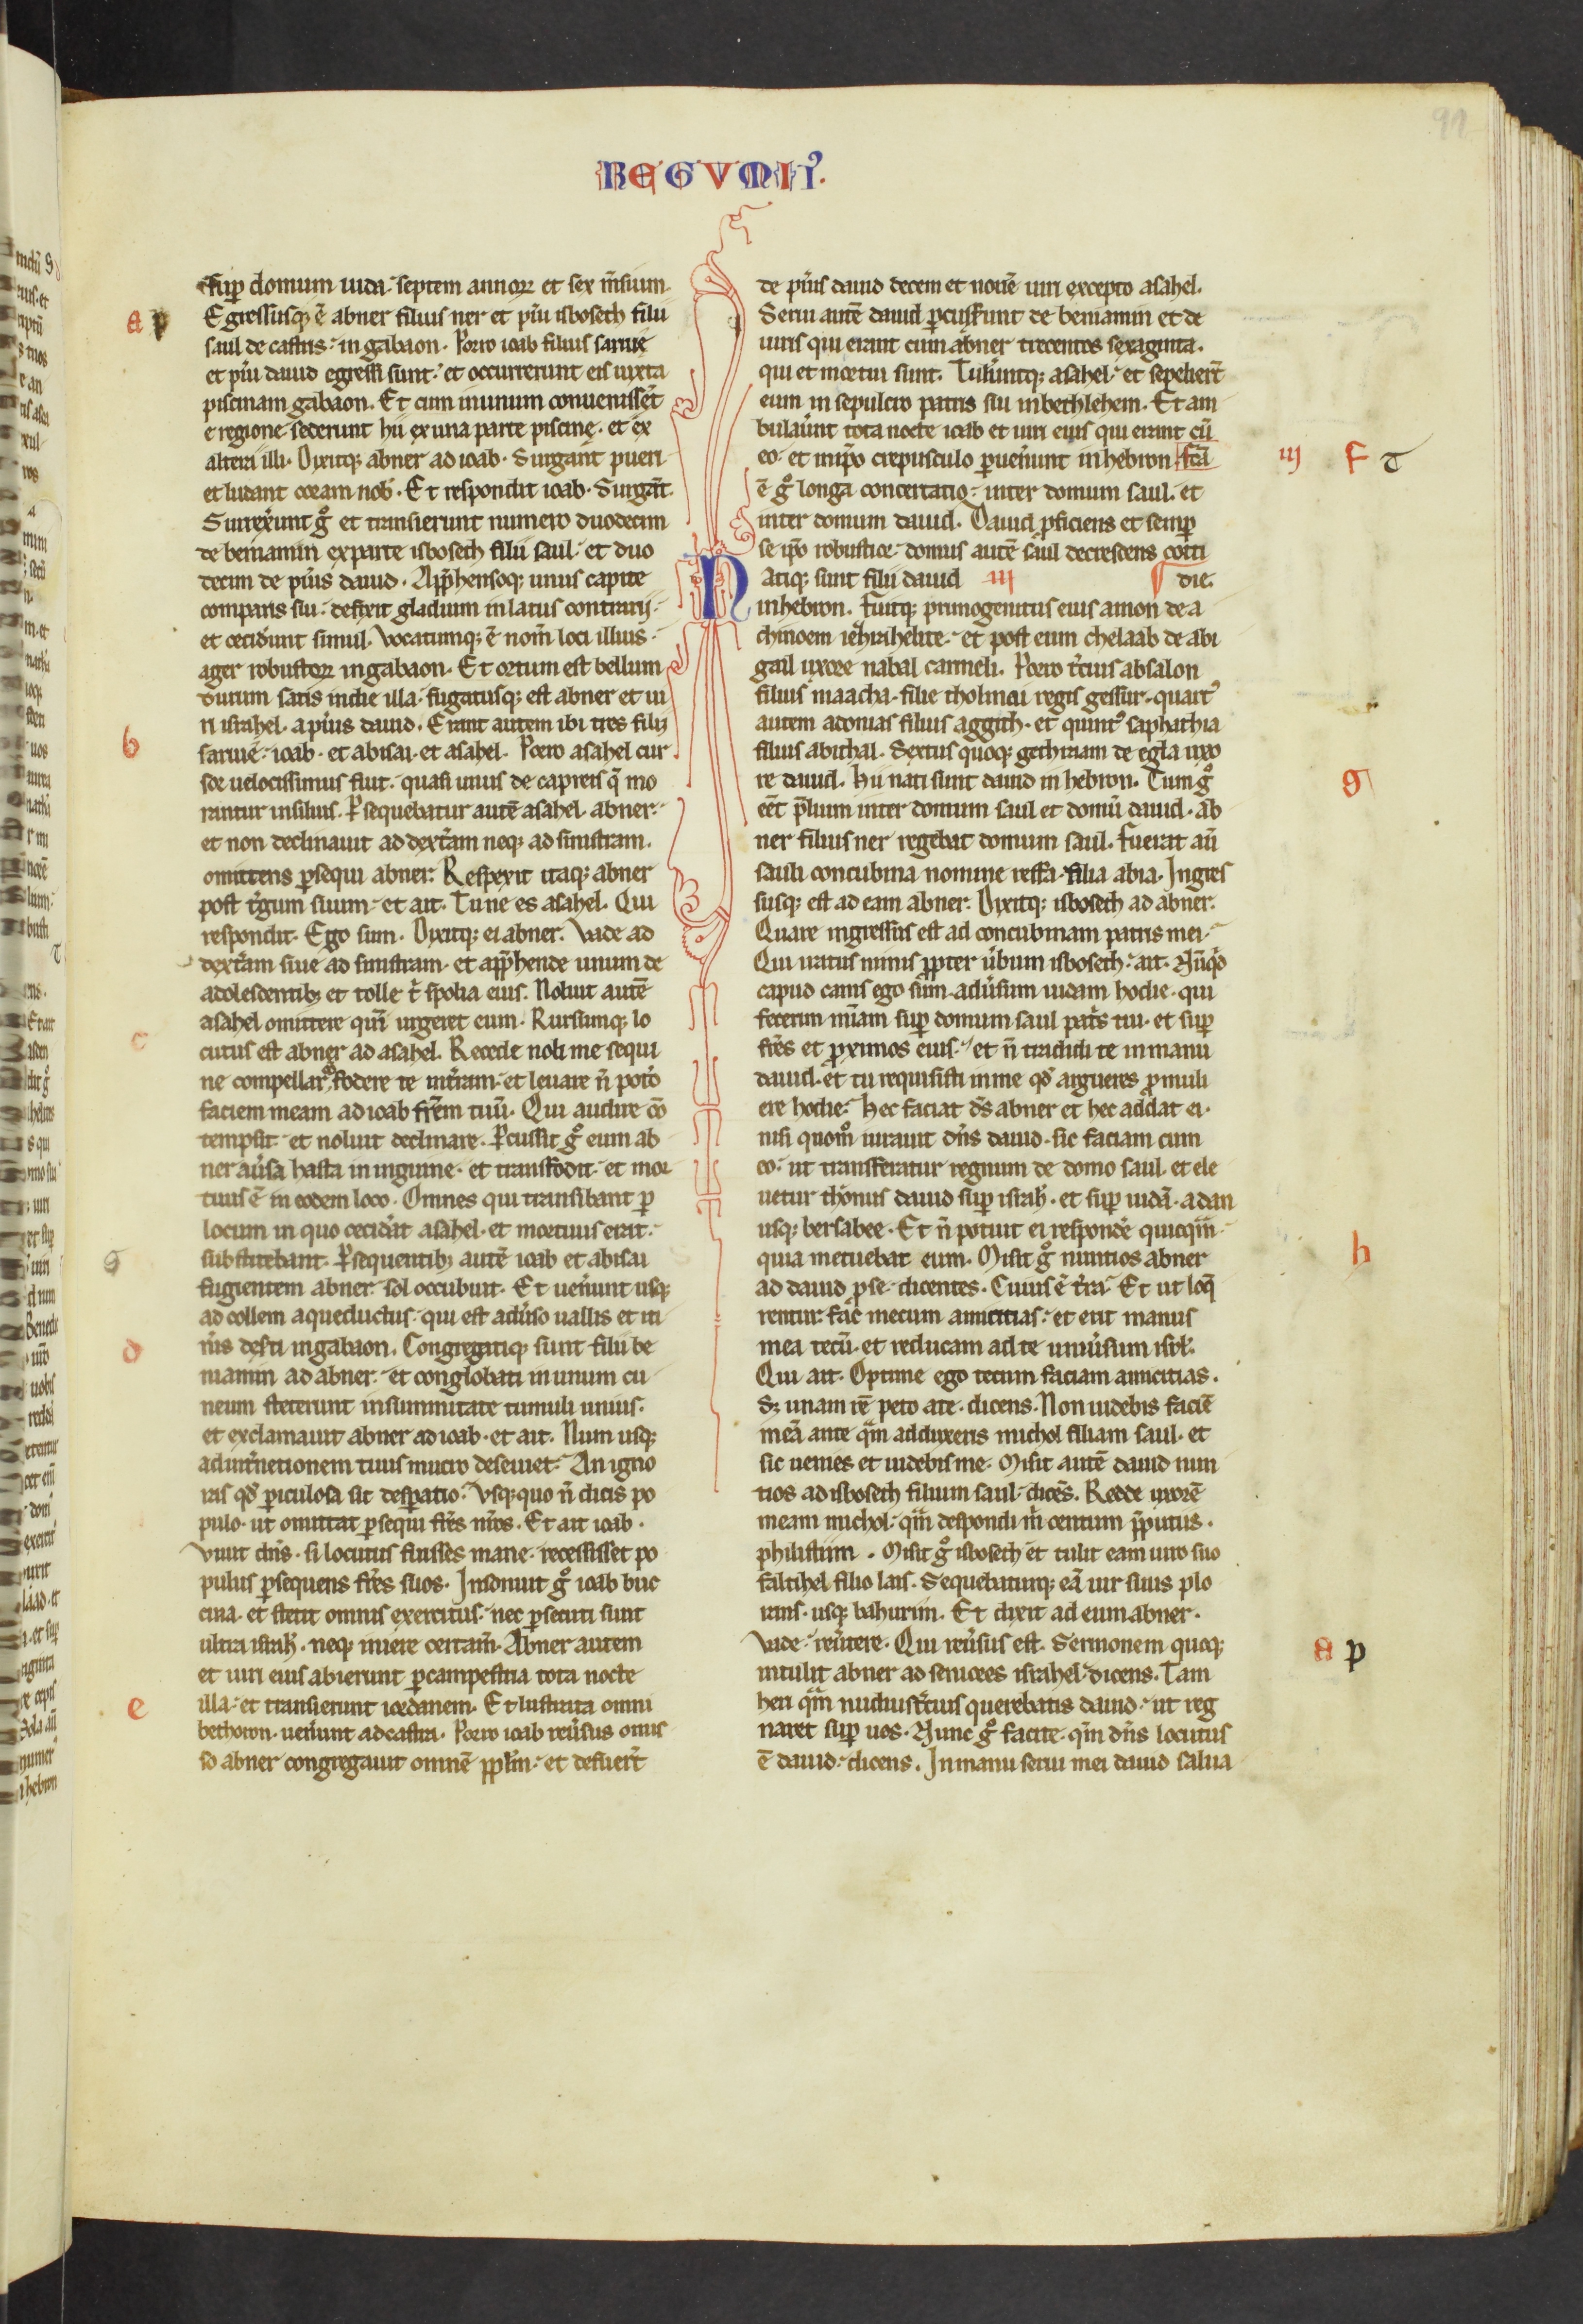 REGVM II⁹.
91
sup̱ domum iuda. septem annoꝝ et sex m̄sium.
Egressusqꝫ ē abner filius ner et pu̓i isbosech filii
saul de castris. in gabaon. Porro ioab filius saruie
et pu̓i dauid egressi sunt. et occurrerunt eis iuxta
piscinam gabaon. Et cum inunum conuenisse͛t
e regione sederunt hii ex una parte piscinę. et ex
altera illi. Dixitqꝫ abner ad ioab. Surgant pueri
et ludant coram nob̓. Et respondit ioab. Surgāt.
Surrex̓unt gͦ et transierunt numero duodecim
de beniamin exparte isbosech filii saul. et duo
decim de pu̓is dauid. App̄hensoqꝫ unus capite
comparis sui. defixit gladium inlatus contrarij.
et cecid̓unt simul. Vocatumqꝫ ē nom̄ loci illius.
ager robustoꝝ ingabaon. Et ortum est bellum
durum satis indie illa. fugatusqꝫ est abner et ui
ri israhel. a pu̓is dauid. Erant autem ibi tres filij
saruie. ioab. et abisai. et asahel. Porro asahel cur
sor uelocissimus fuit. quasi unus de capreis q̄ mo
rantur insiluis. Ꝑsequebatur autē asahel. abner.
et non declinauit ad dext̓am neqꝫ ad sinistram.
omittens ꝑsequi abner. Respexit itaqꝫ abner
post t̓gum suum. et ait. Tu ne es asahel. Qui
respondit. Ego sum. Dixitqꝫ ei abner. Vade ad
dext̓am siue ad sinistram. et app̄hende unum de
adolescentibꝫ et tolle t̓ spolia eius. Noluit autē
asahel omittere quī urgeret eum. Rursumqꝫ lo
cutus est abner ad asahel. Recede noli me sequi
ne compellar fodere te int̓ram. et leuare n̄ pot̓o
faciem meam ad ioab fr̄em tuū. Qui audire cō
tempsit. et noluit declinare. Ꝑcussit gͦ eum ab
ner au̓sa hasta in inguine. et transfodit. et mor
tuus ē in eodem loco. Omnes qui transibant ꝑ
locum in quo cecid̓at asahel. et mortuus erat.
subsistebant. Ꝑsequentibꝫ autē ioab et abisai
fugientem abner. sol occubuit. Et uen̓unt usqꝫ
ad collem aqueductus. qui est adu̓so uallis et iti
n̓is des̓ti ingabaon. Congregatiqꝫ sunt filii be
niamin ad abner. et conglobati inunum cu
neum steterunt insummitate tumuli unius.
et exclamauit abner ad ioab. et ait. Num usqꝫ
ad int̓netionem tuus mucro deseuiet. An igno
ras qđ ꝑiculosa sit desꝑatio. Vsqꝫquo n̄ dicis po
pulo. ut omittat ꝑsequi fr̄es n̄ros. Et ait ioab.
Viuit dn̄s. si locutus fuisses mane. recessisset po
pulus ꝑsequens fr̄es suos. Insonuit gͦ ioab buc
cina. et stetit omnis exercitus. nec ꝑsecuti sunt
ultra israhl̓. neqꝫ iniere certam̄. Abner autem
et uiri eius abierunt ꝑcampestria tota nocte
illa. et transierunt iordanem. Et lustrata omni
bethoron. uen̓unt ad castra. Porro ioab reu̓sus omis
so abner congregauit omnē pp̄lm. et defuer̄t
de pu̓is dauid decem et nouē uiri excepto asahel.
Serui autē dauid ꝑcusserunt de beniamin et de
uiris qui erant cum abner trecentos sexaginta.
qui et mortui sunt. Tuler̓untqꝫ asahel. et sepelier̄t
eum in sepulcro patris sui inbethlehem. Et am
bulau̓unt tota nocte ioab et uiri eius qui erant cū
eo. et inip̄o crepusculo ꝑuen̓unt inhebron. Fc̄a
ē gͦ longa concertatio. inter domum saul. et
inter domum dauid. Dauid ꝓficiens et semꝑ
se ip̄o robustior. domus autē saul decrescens cotti
Natiqꝫ sunt filii dauid iij die.
inhebron. Fuitqꝫ primogenitus eius amon de a
chinoem iezrahelite. et post eum chelaab de abi
gail uxore nabal carmeli. Porro t̓cius absalon
filius maacha. filie tholmai regis gessur. quart⁹
autem adonias filius aggith. et quint⁹ saphathia
filius abithal. Sextus quoqꝫ gethraam de egla uxo
re dauid. Hii nati sunt dauid in hebron. Cum gͦ
eēt p̄lium inter domum saul et domū dauid. ab
ner filius ner regebat domum saul. Fuerat aū
sauli concubina nomine resfa. filia abia. Ingres
susqꝫ est ad eam abner. Dixitqꝫ isbosech ad abner.
Quare ingressus est ad concubinam patris mei.
Qui iratus nimis ꝓpter u̓bum isbosech. ait. Nūqͥd
capud canis ego sum. adu̓sum iudam hodie. qui
fecerim mīam sup̱ domum saul pat̓s tui. et sup̱
fr̄es et ꝓximos eius. et n̄ tradidi te inmanu
dauid. et tu requisisti inme qđ argueres ꝓ muli
ere hodie. Hec faciat ds̄ abner et hec addat ei.
nisi quom̊ iurauit dn̄s dauid. sic faciam cum
eo. ut transferatur regnum de domo saul. et ele
uetur thronus dauid sup̱ israhl̓. et sup̱ iudā. a dan
usqꝫ bersabee. Et n̄ potuit ei responde͛ quicq̄m.
quia metuebat eum. Misit gͦ nuntios abner
ad dauid ꝓ se. dicentes. Cuius ē t̓ra. Et ut loq̄
rentur. fac mecum amicitias. et erit manus
mea tecū. et reducam ad te uniu̓sum isrl̓.
Qui ait. Optime ego tecum faciam amicitias.
Sꝫ unam rē peto a te. dicens. Non uidebis faciē
meā ante q̄m adduxeris michol filiam saul. et
sic uenies et uidebis me. Misit autē dauid nun
tios ad isbosech filium saul. dicēs. Redde uxorē
meam michol. q̄m despondi m̄ centum p̄putiis.
philistiim. Misit gͦ isbosech et tulit eam uiro suo
faltihel filio lais. Sequebaturqꝫ eā uir suus plo
rans. usqꝫ bahurim. Et dixit ad eum abner.
Vade. reu̓tere. Qui reu̓sus est. Sermonem quoqꝫ
intulit abner ad seniores israhel. dicens. Tam
heri q̄m nudiust̓cius querebatis dauid. ut reg
naret sup̱ uos. Nunc gͦ facite. qm̄ dn̄s locutus
ē dauid. dicens. Inmanu serui mei dauid salua
a p
b
c
d
e
iij f
g
h
a p